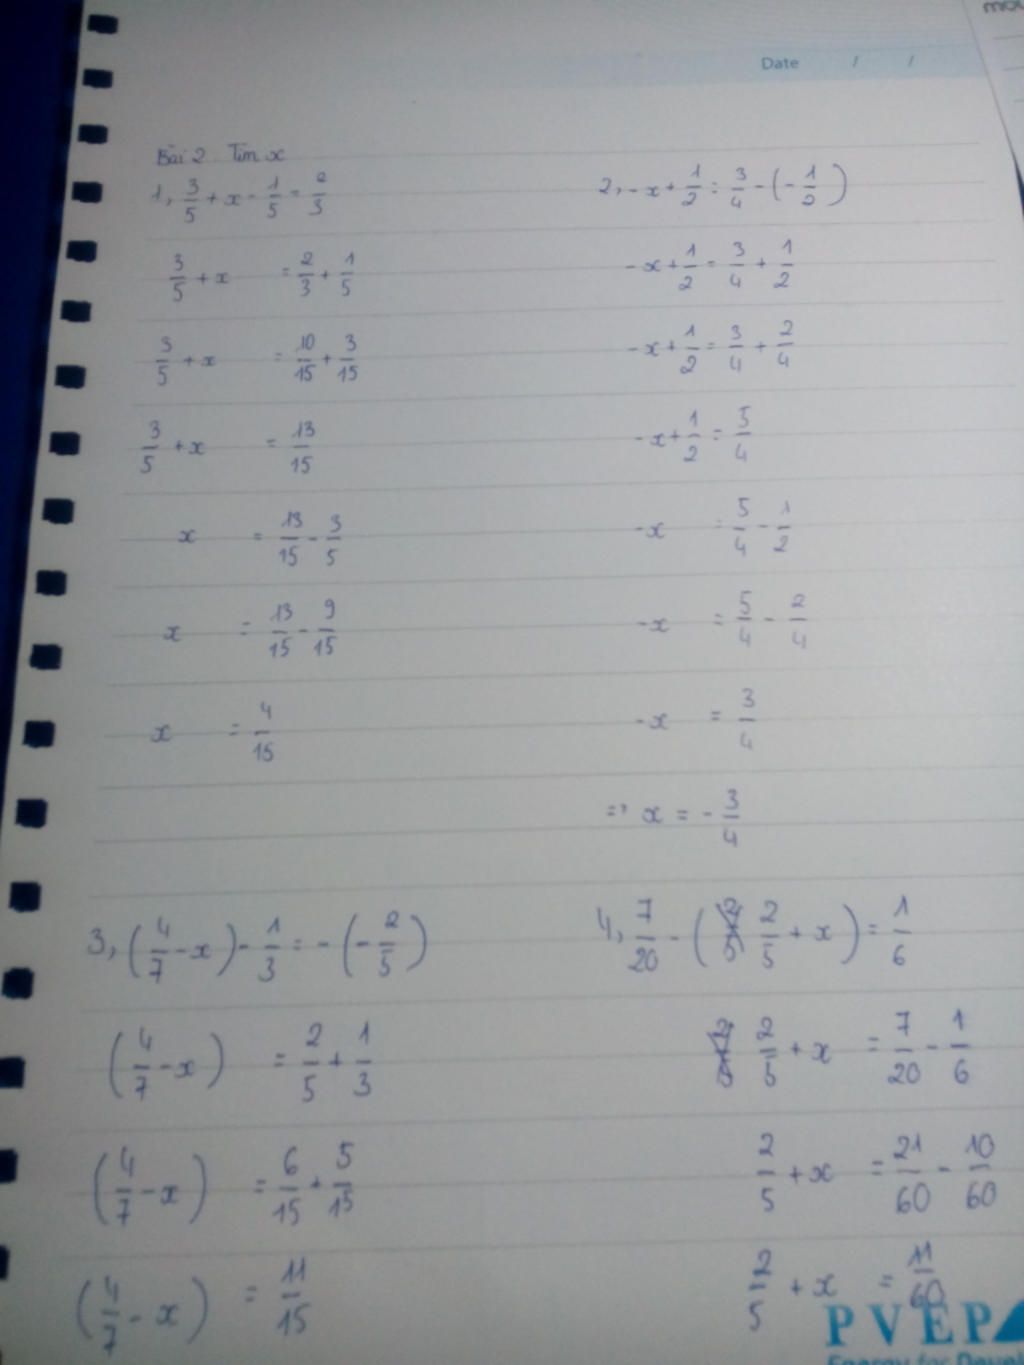 mou
Date / /
Bài 2. Tìm x
1, 3/5 + x - 1/5 = 2/3
3/5 + x = 2/3 + 1/5
3/5 + x = 10/15 + 3/15
3/5 + x = 13/15
x = 13/15 - 3/5
x = 13/15 - 9/15
x = 4/15
2, -x + 1/2 = 3/4 - (-1/2)
-x + 1/2 = 3/4 + 1/2
-x + 1/2 = 3/4 + 2/4
-x + 1/2 = 5/4
-x = 5/4 - 1/2
-x = 5/4 - 2/4
-x = 3/4
=> x = -3/4
3, (4/7 - x) - 1/3 = -(-2/5)
(4/7 - x) = 2/5 + 1/3
(4/7 - x) = 6/15 + 5/15
(4/7 - x) = 11/15
4, 7/20 - (2/5 + x) = 1/6
2/5 + x = 7/20 - 1/6
2/5 + x = 21/60 - 10/60
2/5 + x = 11/60
PVEP
Energy for Develo